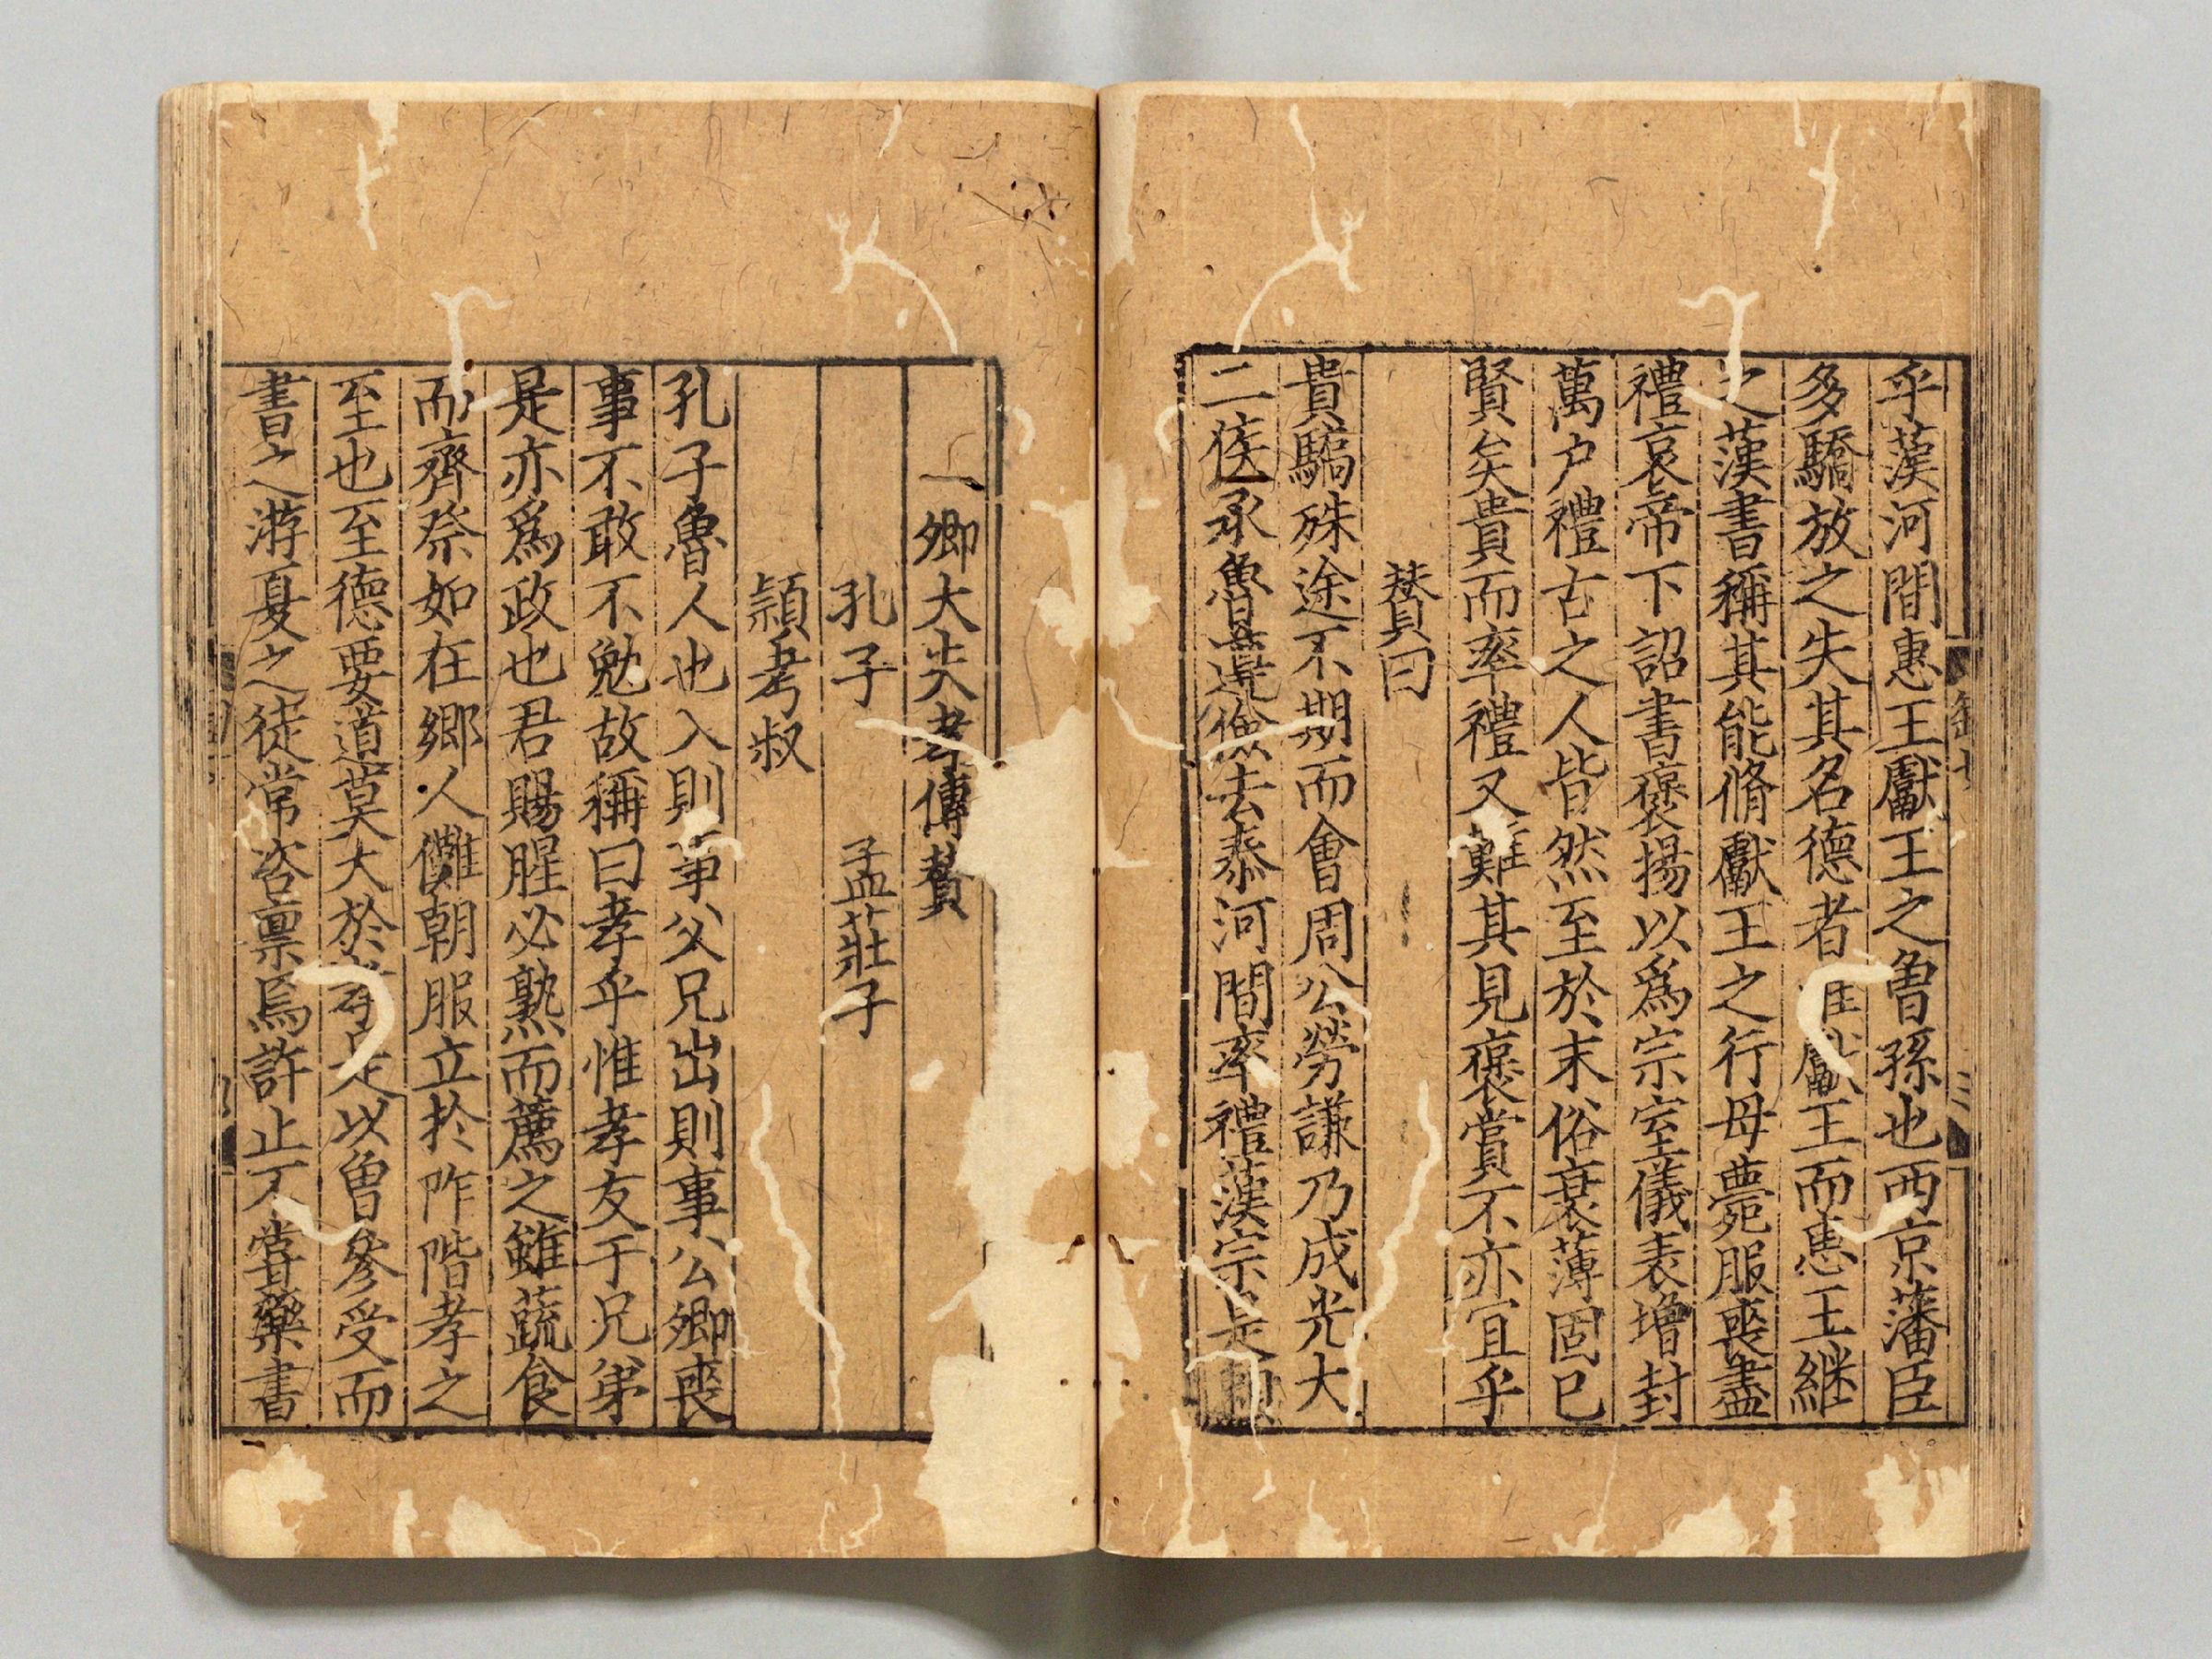 乎漢河間惠王獻王之曾孫也西京藩臣
多驕放之失其名德者唯獻王而惠王継
之漢書稱其能脩獻王之行母薨服喪盡
禮哀帝下詔書褒揚以爲宗室儀表增封
萬户禮古之人皆然至於末俗衰薄固已
賢矣貴而率禮又難其見褒賞不亦宜乎
賛曰
貴驕殊途不期而會周公勞謙乃成光大
二侯承魯遵儉去泰河間率禮漢宗是
卿大夫孝傳賛
孔子 孟莊子
潁考叔
孔子魯人也入則事父兄出則事公卿喪
事不敢不勉故稱曰孝乎惟孝友于兄弟
是亦爲政也君賜腥必熟而薦之雖蔬食
而齊祭如在鄉人儺朝服立於阼階孝之
至也至德要道莫大於孝是以曾參受而
書之游夏之徒常咨禀焉許止不嘗藥書